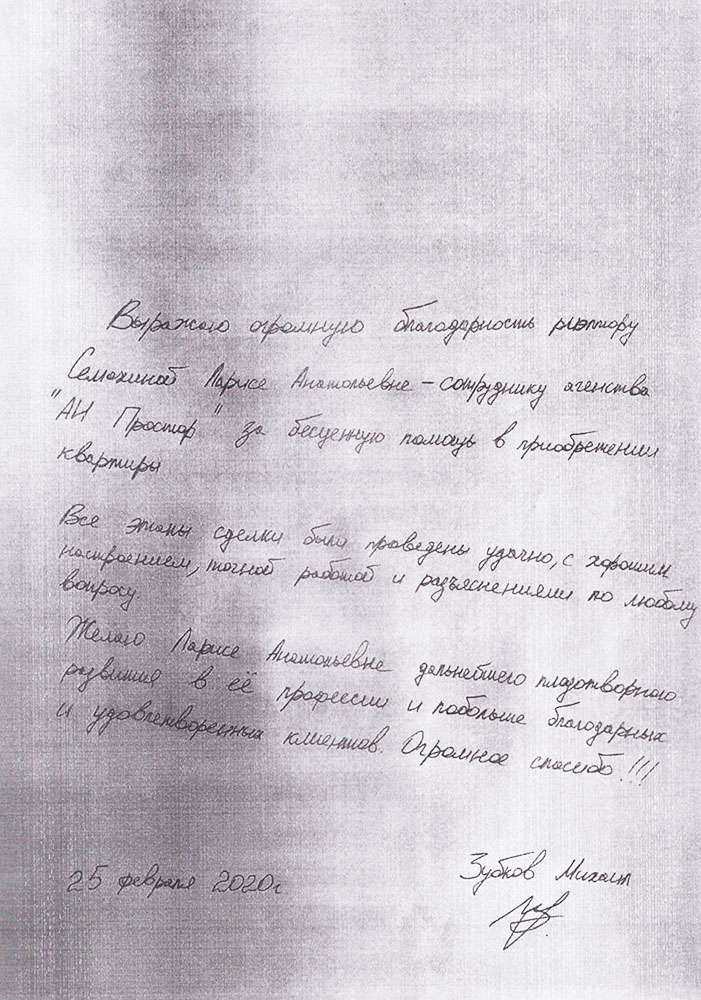 Выражаю огромную благодарность риэлтору
Семахиной Ларисе Анатольевне - сотруднику агенства
"АН Простор" за бесценную помощь в приобретении
квартиры
Все этапы сделки были проведены удачно, с хорошим
настроением, точной работой и разъяснениями по любому
вопросу.
Желаю Ларисе Анатольевне дальнейшего плодотворного
развития в её профессии и побольше благодарных
и удовлетворенных клиентов. Огромное спасибо!!!
25 февраля 2020г
Зубков Михаил